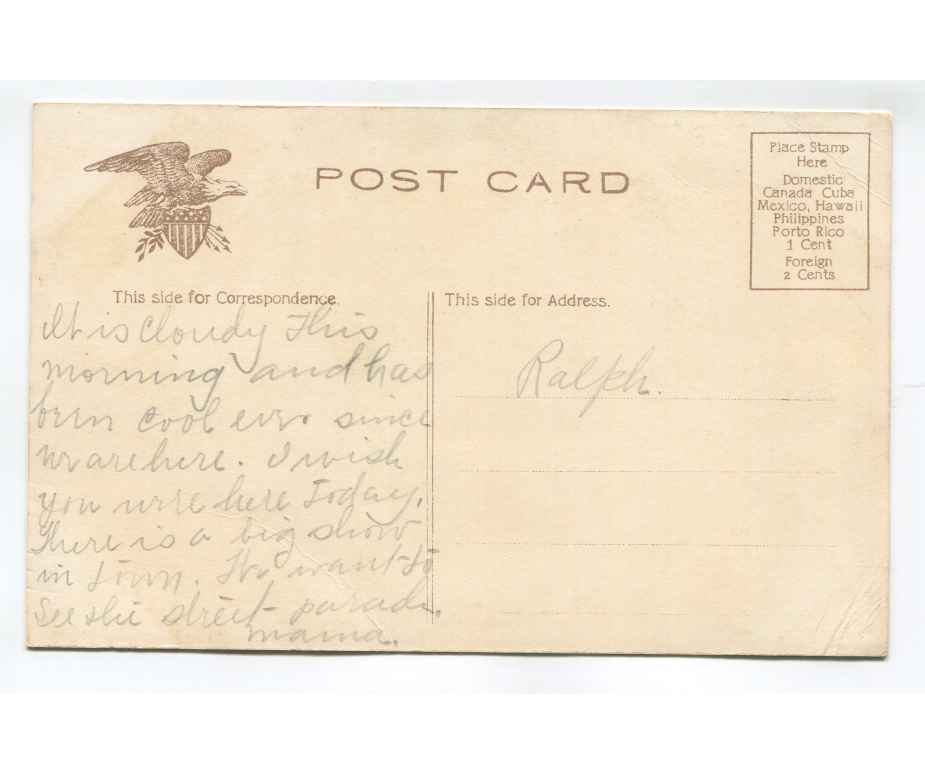 POST CARD
Place Stamp
Here
Domestic
Canada Cuba
Mexico, Hawaii
Philippines
Porto Rico
1 Cent
Foreign
2 Cents
This side for Correspondence.
It is cloudy this
morning and has
been cool ever since
we are here. I wish
you were here today.
There is a big show
in town. We want to
see the street parade.
mama.
This side for Address.
Ralph.